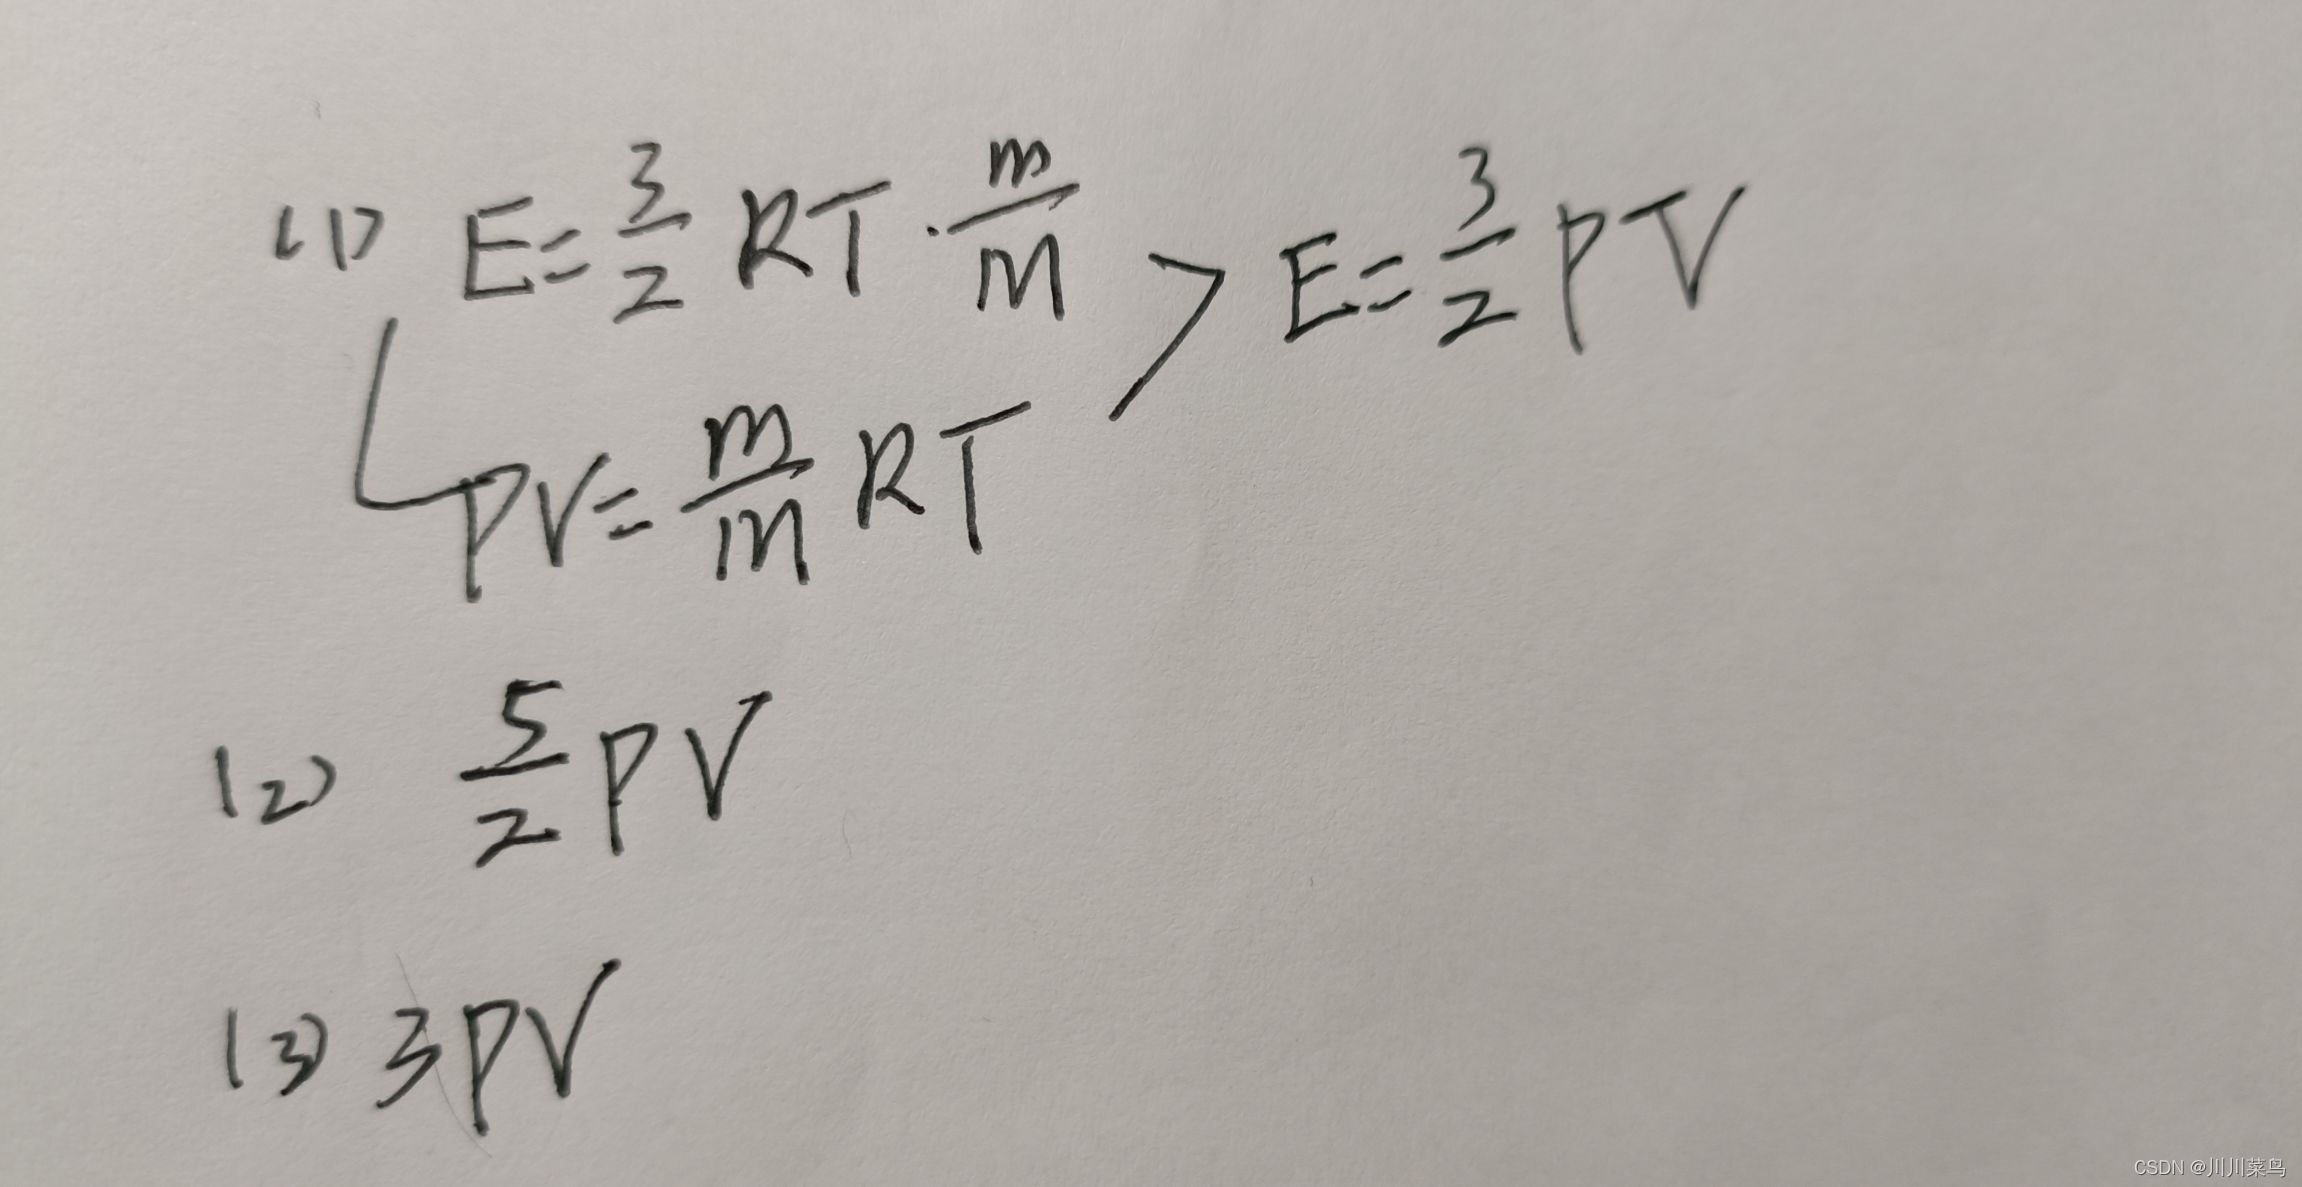 (1) E=3/2 RT·m/M > E=3/2 PV
PV=m/M RT
(2) 5/2 PV
(3) 3PV
CSDN @川川菜鸟